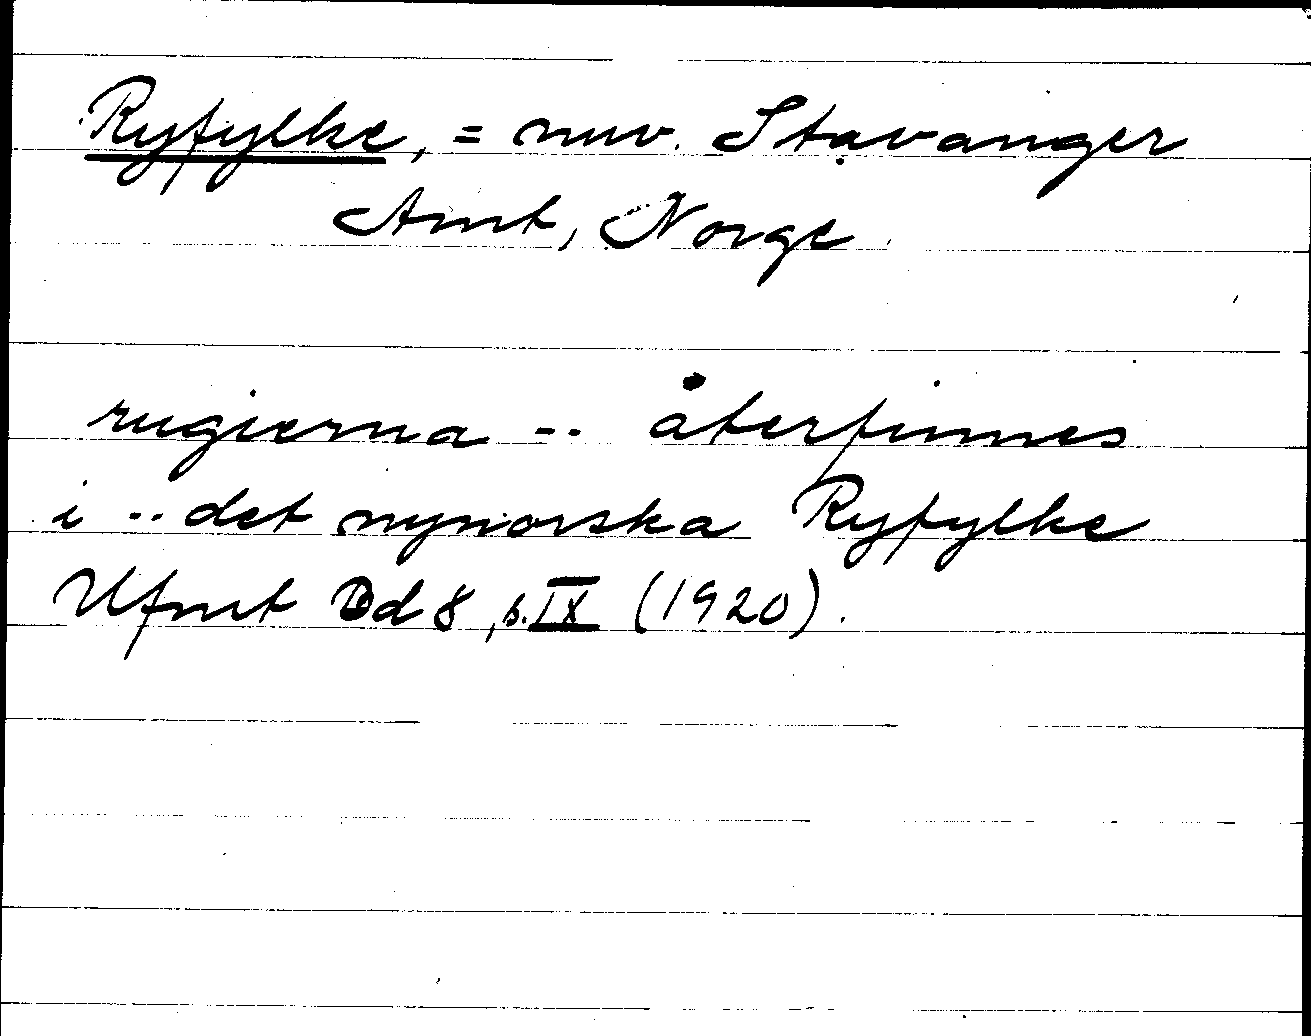 Ryfylke, = nuv. Stavanger
Amt, Norge.
rugierna -- återfinnes
i -- det nynorska Ryfylke
Ufmt Od 8, s. IX (1920).